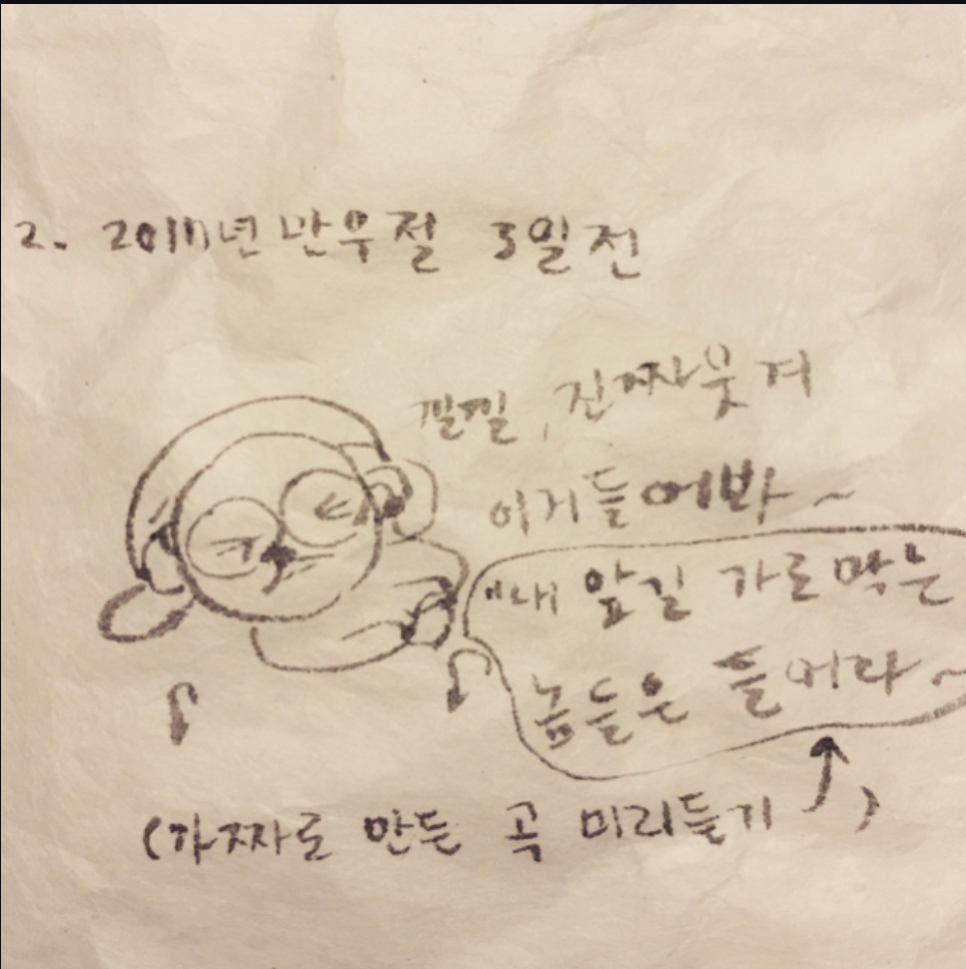 2. 2017년 만우절 3일전
낄낄, 진짜웃겨
이거들어봐~
"내 앞길 가로막는
놈들은 들어라~
(가짜로 만든 곡 미리듣기↑)